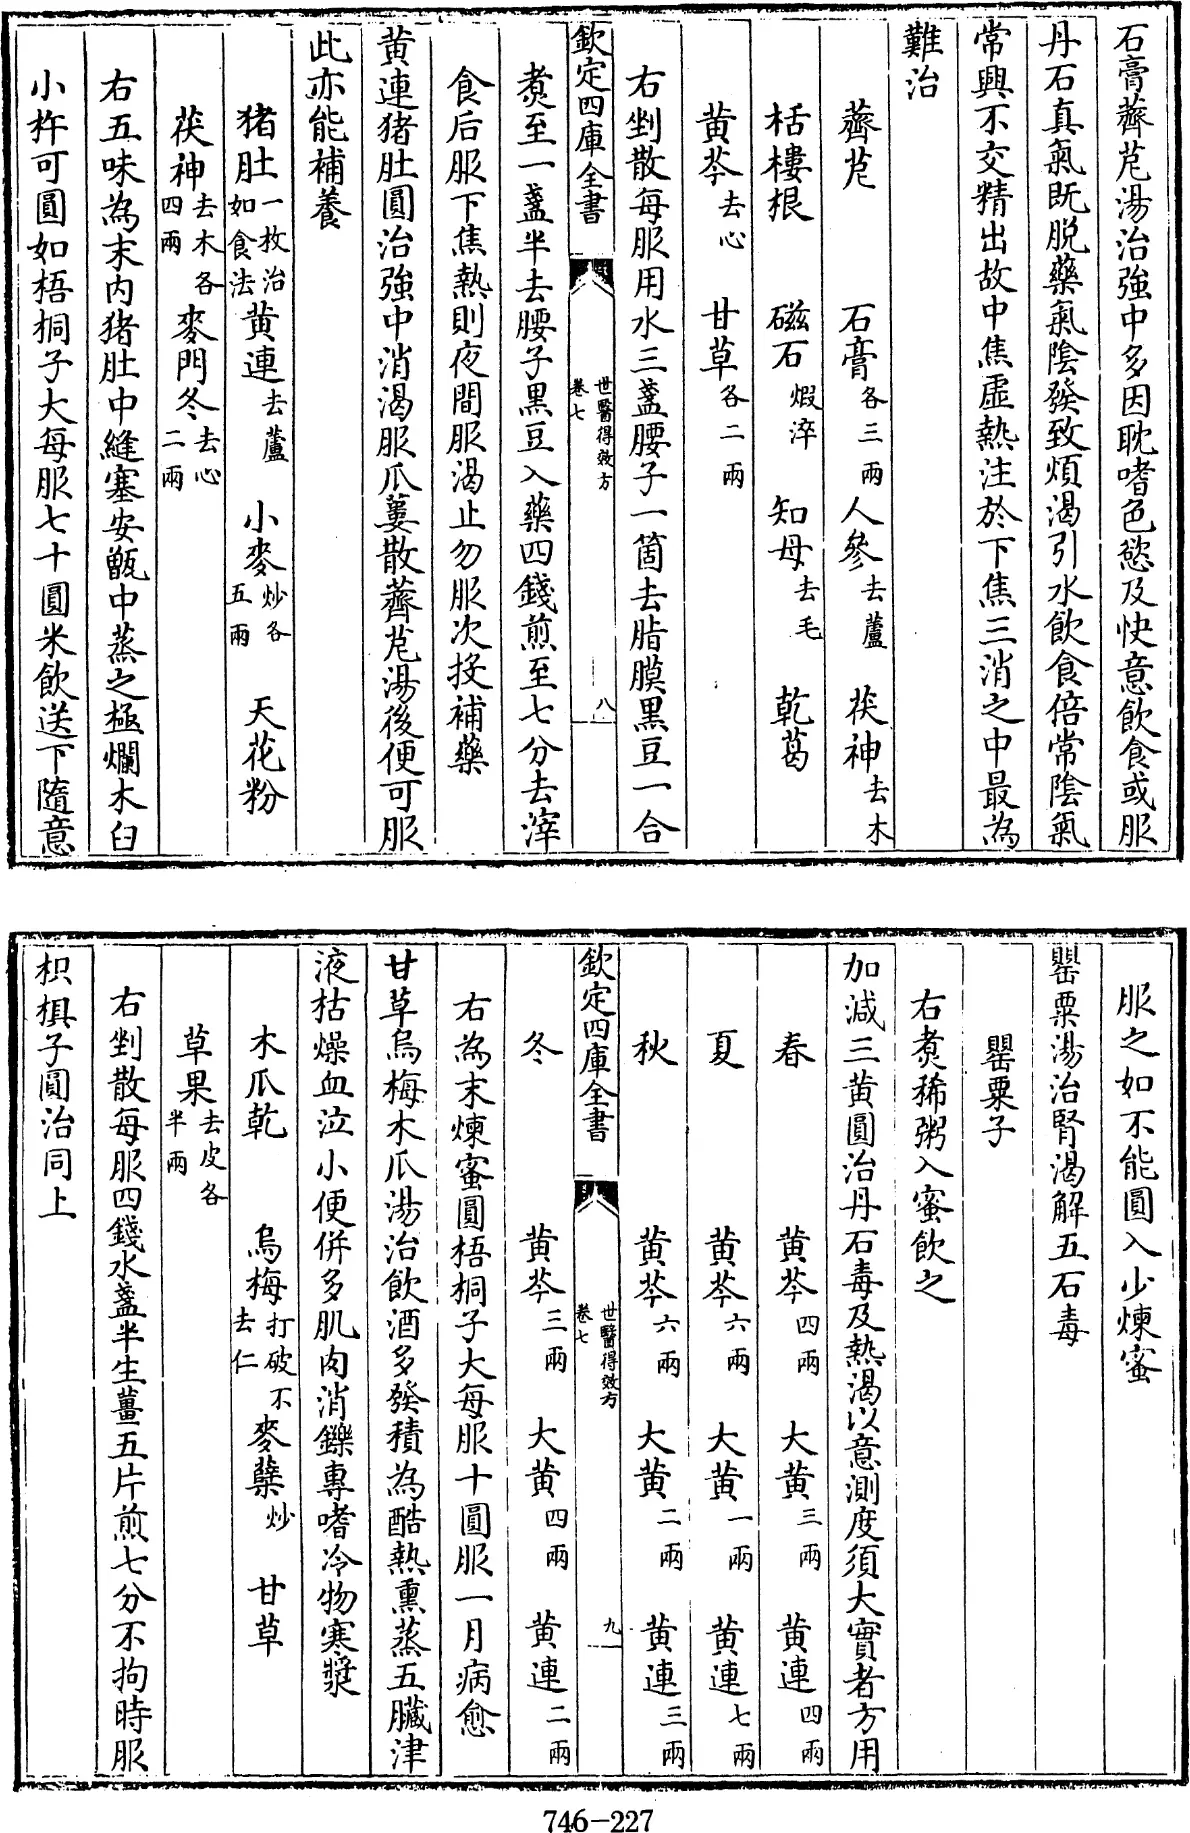 石膏薺苨湯治強中多因耽嗜色慾及快意飲食或服
丹石真氣既脱藥氣陰發致煩渴引水飲食倍常陰氣
常興不交精出故中焦虛熱注於下焦三消之中最為
難治
薺苨　石膏各三兩　人參去蘆　茯神去木
栝樓根　磁石煆淬　知母去毛　乾葛
黄芩去心　甘草各二兩
右剉散每服用水三盞腰子一箇去脂膜黒豆一合
欽定四庫全書　世醫得效方卷七　八
煑至一盞半去腰子黒豆入藥四錢煎至七分去滓
食后服下焦熱則夜間服渴止勿服次投補藥
黄連猪肚圓治強中消渴服瓜蔞散薺苨湯後便可服
此亦能補養
猪肚一枚治如食法　黄連去蘆　小麥炒各五兩　天花粉
茯神去木各四兩　麥門冬去心二兩
右五味為末内猪肚中縫塞安甑中蒸之極爛木臼
小杵可圓如梧桐子大每服七十圓米飲送下隨意
服之如不能圓入少煉蜜
罌粟湯治腎渴解五石毒
罌粟子
右煑稀粥入蜜飲之
加減三黄圓治丹石毒及熱渴以意測度須大實者方用
春　黄芩四兩　大黄三兩　黄連四兩
夏　黄芩六兩　大黄一兩　黄連七兩
秋　黄芩六兩　大黄二兩　黄連三兩
欽定四庫全書　世醫得效方卷七　九
冬　黄芩三兩　大黄四兩　黄連二兩
右為末煉蜜圓梧桐子大每服十圓服一月病愈
甘草烏梅木瓜湯治飲酒多發積為酷熱熏蒸五臟津
液枯燥血泣小便併多肌肉消鑠專嗜冷物寒漿
木瓜乾　烏梅打破不去仁　麥糵炒　甘草
草果去皮各半兩
右剉散每服四錢水盞半生薑五片煎七分不拘時服
枳椇子圓治同上
746-227